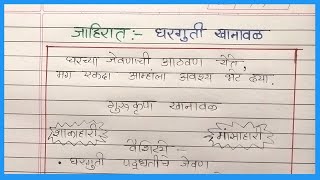 जाहिरात:- घरगुती खानावळ
घरच्या जेवणाची आठवण येते,
मग एकदा आम्हाला अवश्य भेट द्या.
गुरुकृपा खानावळ
शाकाहारी
मांसाहारी
वैशिष्टे -
• घरगुती पद्धतीचे जेवण